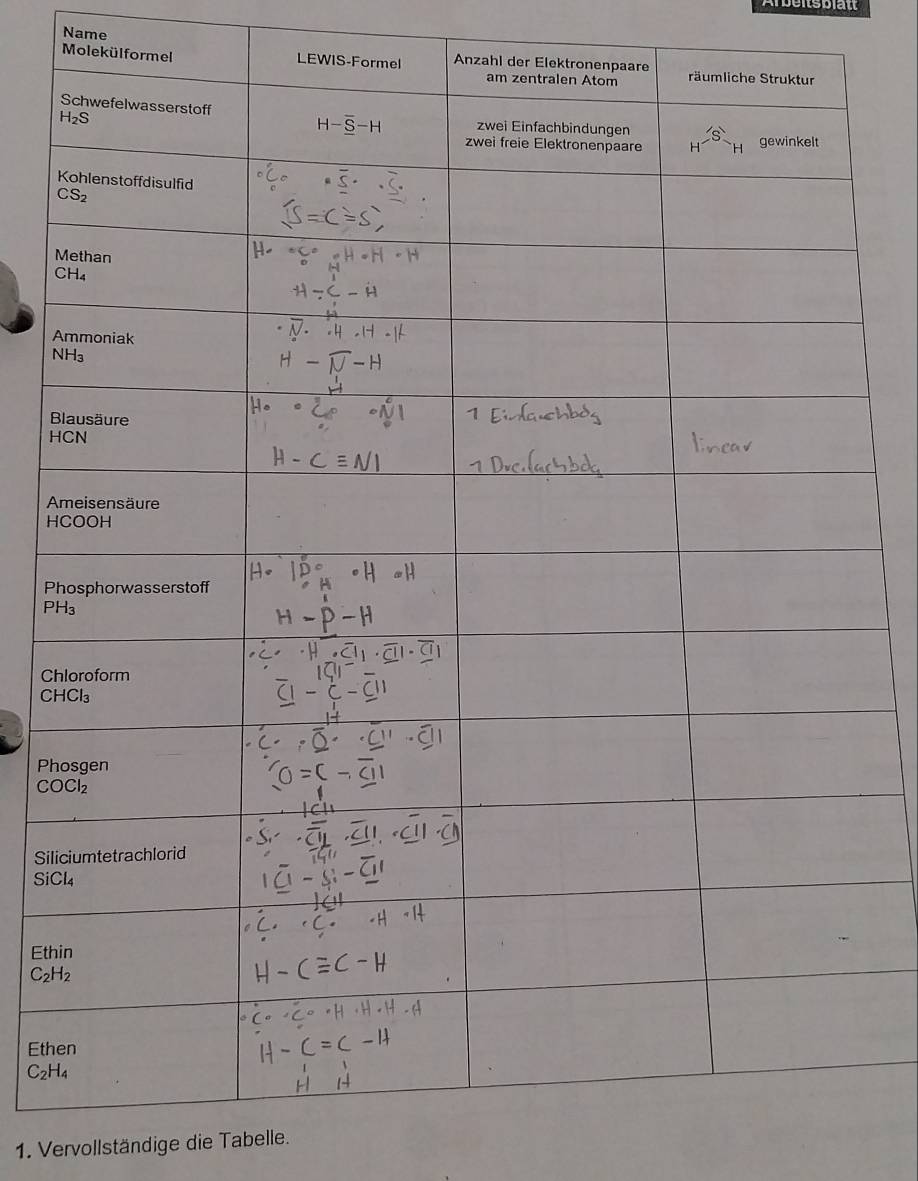 Arbeitsblatt
Name
Molekülformel
LEWIS-Formel
Anzahl der Elektronenpaare
am zentralen Atom
räumliche Struktur
Schwefelwasserstoff
H₂S
H-S-H
zwei Einfachbindungen
zwei freie Elektronenpaare
S
H H
gewinkelt
Kohlenstoffdisulfid
CS₂
C S S
S=C=S
Methan
CH₄
H C H H H
H
H-C-H
H
Ammoniak
NH₃
N H H H
H-N-H
H
Blausäure
HCN
H C N|
H-C≡N|
1 Einfachbdg
1 Dreifachbdg
linear
Ameisensäure
HCOOH
Phosphorwasserstoff
PH₃
H |P H H
H
H-P-H
Chloroform
CHCl₃
C H Cl| Cl| Cl|
|Cl|
Cl-C-Cl|
H
Phosgen
COCl₂
C O Cl| Cl|
O=C-Cl|
|Cl|
Siliciumtetrachlorid
SiCl₄
Si Cl| Cl| Cl| Cl|
|Cl|
|Cl-Si-Cl|
|Cl|
Ethin
C₂H₂
C C H H
H-C≡C-H
Ethen
C₂H₄
C C H H H H
H-C=C-H
H H
1. Vervollständige die Tabelle.